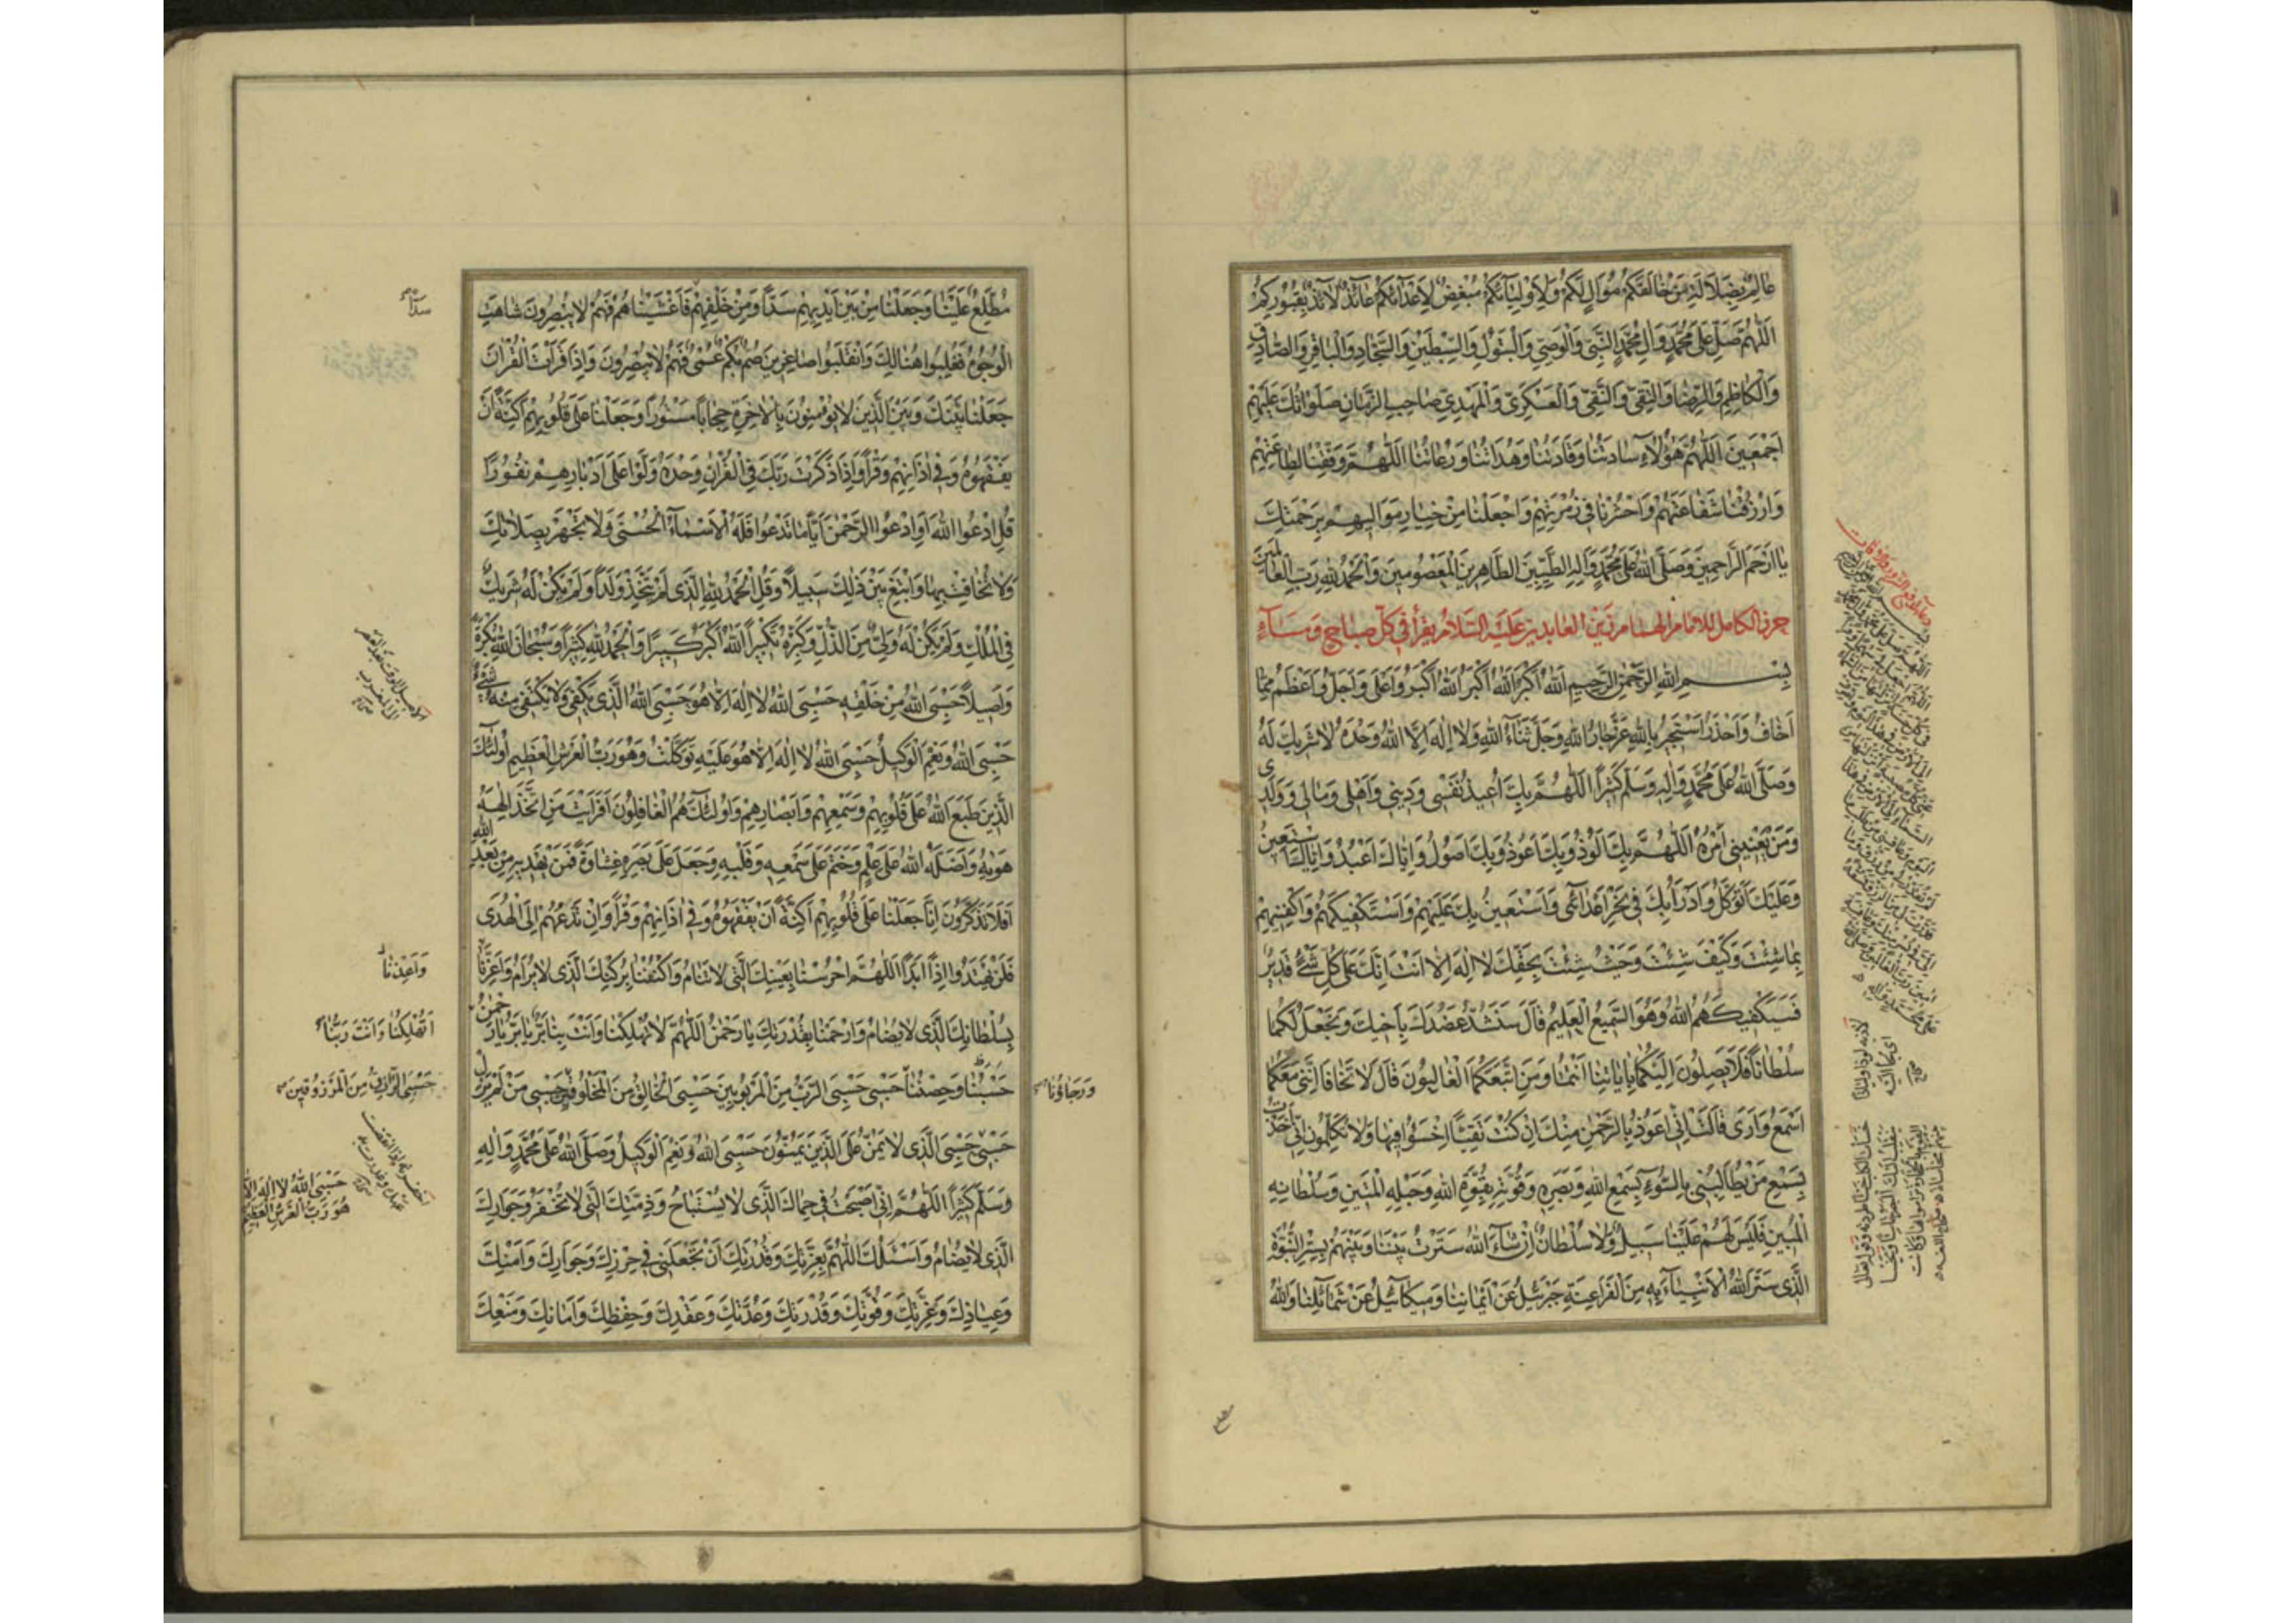 عَالِمٌ بِضَلَالَةِ مَنْ خَالَفَكُمْ مُوَالٍ لَكُمْ وَلِأَوْلِيَائِكُمْ مُبْغِضٌ لِأَعْدَائِكُمْ عَائِذٌ لَائِذٌ بِقُبُورِكُمْ
اَللّٰهُمَّ صَلِّ عَلَى مُحَمَّدٍ وَآلِ مُحَمَّدٍ النَّبِيِّ وَالْوَصِيِّ وَالْبَتُولِ وَالسِّبْطَيْنِ وَالسَّجَّادِ وَالْبَاقِرِ وَالصَّادِقِ
وَالْكَاظِمِ وَالرِّضَا وَالتَّقِيِّ وَالنَّقِيِّ وَالْعَسْكَرِيِّ وَالْمَهْدِيِّ صَاحِبِ الزَّمَانِ صَلَوَاتُكَ عَلَيْهِمْ
اَجْمَعِينَ اَللّٰهُمَّ هٰؤُلَاءِ سَادَتُنَا وَقَادَتُنَا وَهُدَاتُنَا وَرُعَاتُنَا اَللّٰهُمَّ وَفِّقْنَا لِطَاعَتِهِمْ
وَارْزُقْنَا شَفَاعَتَهُمْ وَاحْشُرْنَا فِي زُمْرَتِهِمْ وَاجْعَلْنَا مِنْ خِيَارِ مَوَالِيهِمْ بِرَحْمَتِكَ
يَا اَرْحَمَ الرَّاحِمِينَ وَصَلَّى اللهُ عَلَى مُحَمَّدٍ وَآلِهِ الطَّيِّبِينَ الطَّاهِرِينَ الْمَعْصُومِينَ وَالْحَمْدُ لِلّٰهِ رَبِّ الْعَالَمِينَ
حرز الكامل للامام الهمام زين العابدين عليه السلام يقرأ في كل صباح ومساء
بِسْمِ اللهِ الرَّحْمٰنِ الرَّحِيمِ اَللهُ اَكْبَرُ اَللهُ اَكْبَرُ اَللهُ اَكْبَرُ وَاَعْلَى وَاَجَلُّ وَاَعْظَمُ مِمَّا
اَخَافُ وَاَحْذَرُ اَسْتَجِيرُ بِاللهِ عَزَّ جَارُ اللهِ وَجَلَّ ثَنَاءُ اللهِ وَلَا اِلٰهَ اِلَّا اللهُ وَحْدَهُ لَا شَرِيكَ لَهُ
وَصَلَّى اللهُ عَلَى مُحَمَّدٍ وَآلِهِ وَسَلَّمَ كَثِيرًا اَللّٰهُمَّ بِكَ اُعِيذُ نَفْسِي وَدِينِي وَاَهْلِي وَمَالِي وَوَلَدِي
وَمَنْ يَعْنِينِي اَمْرُهُ اَللّٰهُمَّ بِكَ اَلُوذُ وَبِكَ اَعُوذُ وَبِكَ اَصُولُ وَاِيَّاكَ اَعْبُدُ وَاِيَّاكَ اَسْتَعِينُ
وَعَلَيْكَ اَتَوَكَّلُ وَاَدْرَأُ بِكَ فِي نَحْرِ اَعْدَائِي وَاَسْتَعِينُ بِكَ عَلَيْهِمْ وَاَسْتَكْفِيكَهُمْ وَاكْفِنِيهِمْ
بِمَا شِئْتَ وَكَيْفَ شِئْتَ وَحَيْثُ شِئْتَ بِحَقِّكَ لَا اِلٰهَ اِلَّا اَنْتَ اِنَّكَ عَلَى كُلِّ شَيْءٍ قَدِيرٌ
فَسَيَكْفِيكَهُمُ اللهُ وَهُوَ السَّمِيعُ الْعَلِيمُ قَالَ سَنَشُدُّ عَضُدَكَ بِاَخِيكَ وَنَجْعَلُ لَكُمَا
سُلْطَانًا فَلَا يَصِلُونَ اِلَيْكُمَا بِآيَاتِنَا اَنْتُمَا وَمَنِ اتَّبَعَكُمَا الْغَالِبُونَ قَالَ لَا تَخَافَا اِنَّنِي مَعَكُمَا
اَسْمَعُ وَاَرَى قَالَتْ اِنِّي اَعُوذُ بِالرَّحْمٰنِ مِنْكَ اِنْ كُنْتَ تَقِيًّا اخْسَئُوا فِيهَا وَلَا تُكَلِّمُونِ اِنِّي اَخَذْتُ
بِسَمْعِ مَنْ يُطَالِبُنِي بِالسُّوءِ بِسَمْعِ اللهِ وَبَصَرِهِ وَقُوَّتِهِ بِقُوَّةِ اللهِ وَحَبْلِهِ الْمَتِينِ وَسُلْطَانِهِ
الْمُبِينِ فَلَيْسَ لَهُمْ عَلَيْنَا سَبِيلٌ وَلَا سُلْطَانٌ اِنْ شَاءَ اللهُ سَتَرْتُ بَيْنَنَا وَبَيْنَهُمْ بِسِتْرِ النُّبُوَّةِ
الَّذِي سَتَرَ اللهُ الْاَنْبِيَاءَ بِهِ مِنَ الْفَرَاعِنَةِ جَبْرَئِيلُ عَنْ اَيْمَانِنَا وَمِيكَائِيلُ عَنْ شَمَائِلِنَا وَاللهُ
مُطَّلِعٌ عَلَيْنَا وَجَعَلْنَا مِنْ بَيْنِ اَيْدِيهِمْ سَدًّا وَمِنْ خَلْفِهِمْ فَاَغْشَيْنَاهُمْ فَهُمْ لَا يُبْصِرُونَ شَاهَتِ
الْوُجُوهُ فَغُلِبُوا هُنَالِكَ وَانْقَلَبُوا صَاغِرِينَ صُمٌّ بُكْمٌ عُمْيٌ فَهُمْ لَا يُبْصِرُونَ وَاِذَا قَرَأْتَ الْقُرْآنَ
جَعَلْنَا بَيْنَكَ وَبَيْنَ الَّذِينَ لَا يُؤْمِنُونَ بِالْآخِرَةِ حِجَابًا مَسْتُورًا وَجَعَلْنَا عَلَى قُلُوبِهِمْ اَكِنَّةً اَنْ
يَفْقَهُوهُ وَفِي آذَانِهِمْ وَقْرًا وَاِذَا ذَكَرْتَ رَبَّكَ فِي الْقُرْآنِ وَحْدَهُ وَلَّوْا عَلَى اَدْبَارِهِمْ نُفُورًا
قُلِ ادْعُوا اللهَ اَوِ ادْعُوا الرَّحْمٰنَ اَيًّا مَا تَدْعُوا فَلَهُ الْاَسْمَاءُ الْحُسْنَى وَلَا تَجْهَرْ بِصَلَاتِكَ
وَلَا تُخَافِتْ بِهَا وَابْتَغِ بَيْنَ ذٰلِكَ سَبِيلًا وَقُلِ الْحَمْدُ لِلّٰهِ الَّذِي لَمْ يَتَّخِذْ وَلَدًا وَلَمْ يَكُنْ لَهُ شَرِيكٌ
فِي الْمُلْكِ وَلَمْ يَكُنْ لَهُ وَلِيٌّ مِنَ الذُّلِّ وَكَبِّرْهُ تَكْبِيرًا اَللهُ اَكْبَرُ كَبِيرًا وَالْحَمْدُ لِلّٰهِ كَثِيرًا وَسُبْحَانَ اللهِ بُكْرَةً
وَاَصِيلًا حَسْبِيَ اللهُ مِنْ خَلْقِهِ حَسْبِيَ اللهُ لَا اِلٰهَ اِلَّا هُوَ حَسْبِيَ اللهُ الَّذِي يَكْفِي وَلَا يَكْتَفِي مِنْهُ شَيْءٌ
حَسْبِيَ اللهُ وَنِعْمَ الْوَكِيلُ حَسْبِيَ اللهُ لَا اِلٰهَ اِلَّا هُوَ عَلَيْهِ تَوَكَّلْتُ وَهُوَ رَبُّ الْعَرْشِ الْعَظِيمِ اُولٰئِكَ
الَّذِينَ طَبَعَ اللهُ عَلَى قُلُوبِهِمْ وَسَمْعِهِمْ وَاَبْصَارِهِمْ وَاُولٰئِكَ هُمُ الْغَافِلُونَ اَفَرَاَيْتَ مَنِ اتَّخَذَ اِلٰهَهُ
هَوٰيهُ وَاَضَلَّهُ اللهُ عَلَى عِلْمٍ وَخَتَمَ عَلَى سَمْعِهِ وَقَلْبِهِ وَجَعَلَ عَلَى بَصَرِهِ غِشَاوَةً فَمَنْ يَهْدِيهِ مِنْ بَعْدِ اللهِ
اَفَلَا تَذَكَّرُونَ اِنَّا جَعَلْنَا عَلَى قُلُوبِهِمْ اَكِنَّةً اَنْ يَفْقَهُوهُ وَفِي آذَانِهِمْ وَقْرًا وَاِنْ تَدْعُهُمْ اِلَى الْهُدَى
فَلَنْ يَهْتَدُوا اِذًا اَبَدًا اَللّٰهُمَّ احْرُسْنَا بِعَيْنِكَ الَّتِي لَا تَنَامُ وَاكْنُفْنَا بِرُكْنِكَ الَّذِي لَا يُرَامُ وَاَعِزَّنَا
بِسُلْطَانِكَ الَّذِي لَا يُضَامُ وَارْحَمْنَا بِقُدْرَتِكَ يَا رَحْمٰنُ اَللّٰهُمَّ لَا تُهْلِكْنَا وَاَنْتَ بِنَا بَرٌّ يَا بَرُّ يَا رَحْمٰنُ
حَسْبُنَا وَحِصْنُنَا حَسْبِي حَسْبِيَ الرَّبُّ مِنَ الْمَرْبُوبِينَ حَسْبِيَ الْخَالِقُ مِنَ الْمَخْلُوقِينَ حَسْبِي مَنْ لَمْ يَزَلْ
حَسْبِي حَسْبِيَ الَّذِي لَا يَمُنُّ عَلَى الَّذِينَ يَمُنُّونَ حَسْبِيَ اللهُ وَنِعْمَ الْوَكِيلُ وَصَلَّى اللهُ عَلَى مُحَمَّدٍ وَآلِهِ
وَسَلَّمَ كَثِيرًا اَللّٰهُمَّ اِنِّي اَصْبَحْتُ فِي حِمَاكَ الَّذِي لَا يُسْتَبَاحُ وَذِمَّتِكَ الَّتِي لَا تُخْفَرُ وَجِوَارِكَ
الَّذِي لَا يُضَامُ وَاَسْئَلُكَ اللّٰهُمَّ بِعِزَّتِكَ وَقُدْرَتِكَ اَنْ تَجْعَلَنِي فِي حِرْزِكَ وَجِوَارِكَ وَاَمْنِكَ
وَعِيَاذِكَ وَعِزَّتِكَ وَقُوَّتِكَ وَقُدْرَتِكَ وَعُدَّتِكَ وَعَقْدِكَ وَحِفْظِكَ وَاَمَانِكَ وَمَنْعِكَ
سدًّا
وَاَعِذْنَا
اَتُهْلِكُنَا وَاَنْتَ رَبُّنَا
حَسْبِيَ الرَّازِقُ مِنَ الْمَرْزُوقِينَ
وَرَجَاؤُنَا
حَسْبِيَ اللهُ لَا اِلٰهَ اِلَّا
هُوَ رَبُّ الْعَرْشِ الْعَظِيمِ